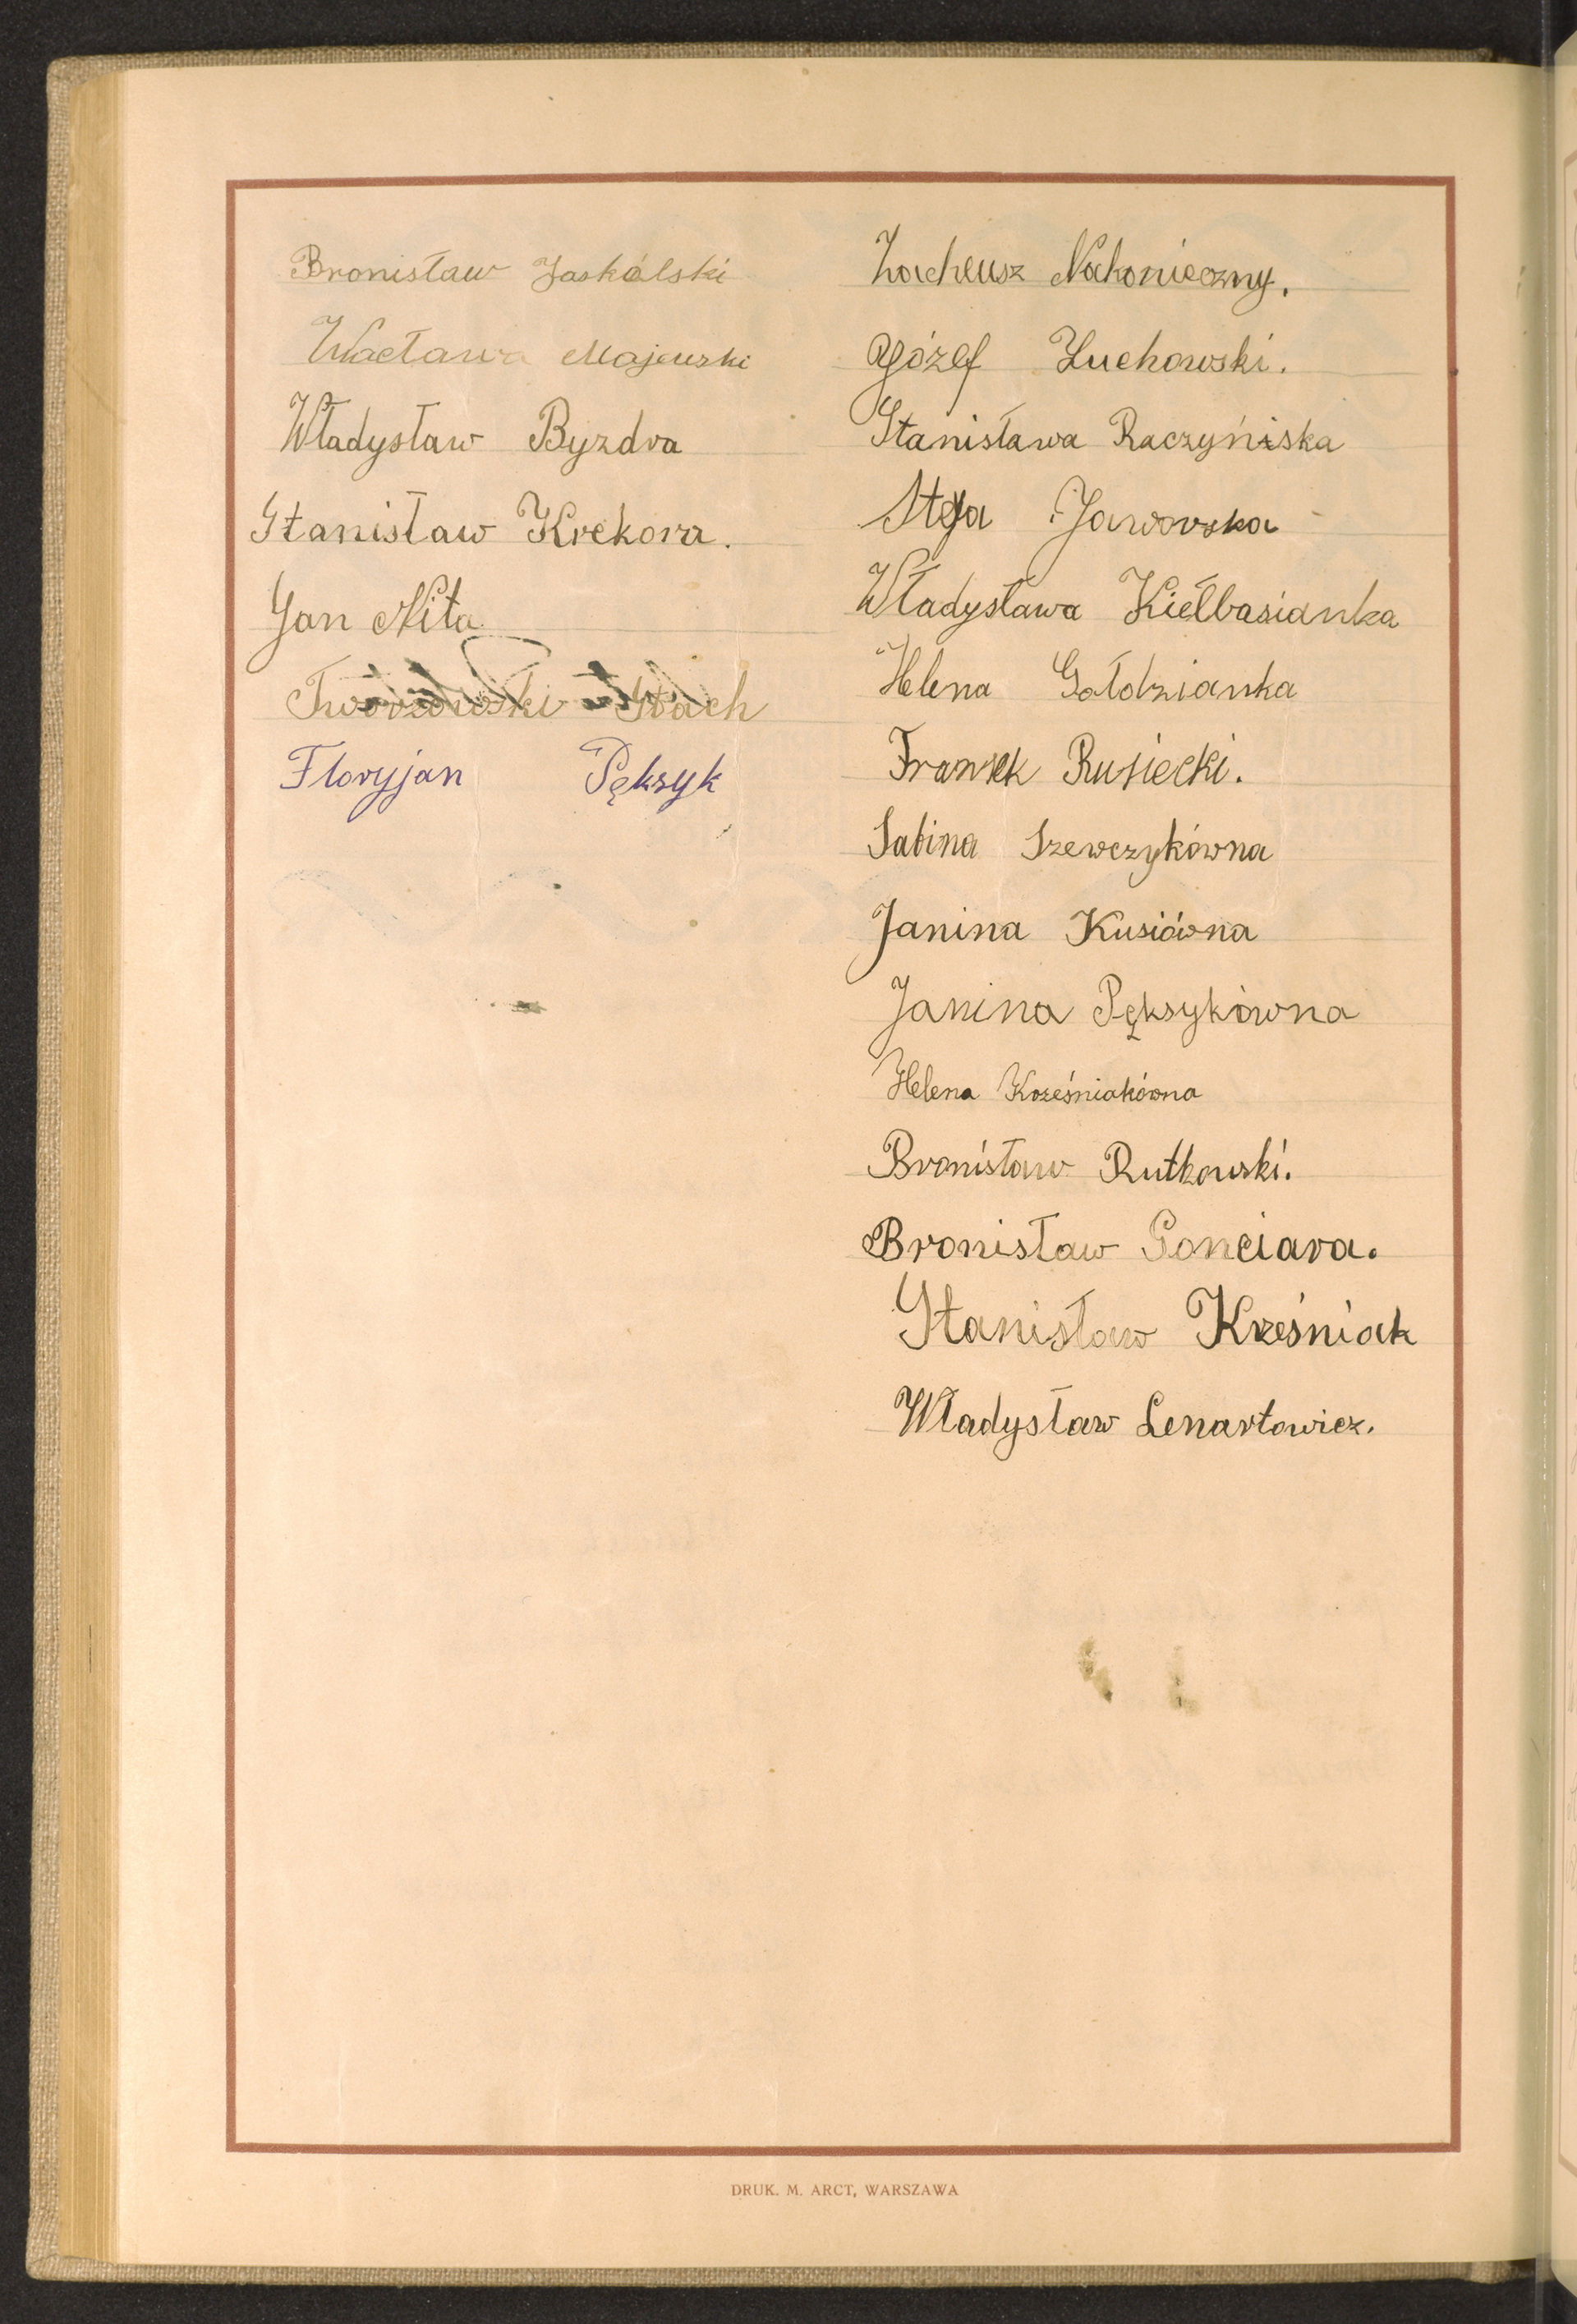 Bronisław Jaskólski
Wacława Majewski
Władysław Byzdra
Stanisław Krekora.
Jan Nita
Tworzowski Stach
Floryjan Pęksyk
Zacheusz Nakonieczny.
Józef Żuchowski.
Stanisława Raczyńska
Stefa Jaworska
Władysława Kiełbasianka
Helena Gołdzianka
Franek Rusiecki.
Sabina Szewczykówna
Janina Kusiówna
Janina Pęksykówna
Helena Krześniakówna
Bronisław Rutkowski.
Bronisław Gonciara.
Stanisław Krześniak
Władysław Lenartowicz.
DRUK. M. ARCT, WARSZAWA